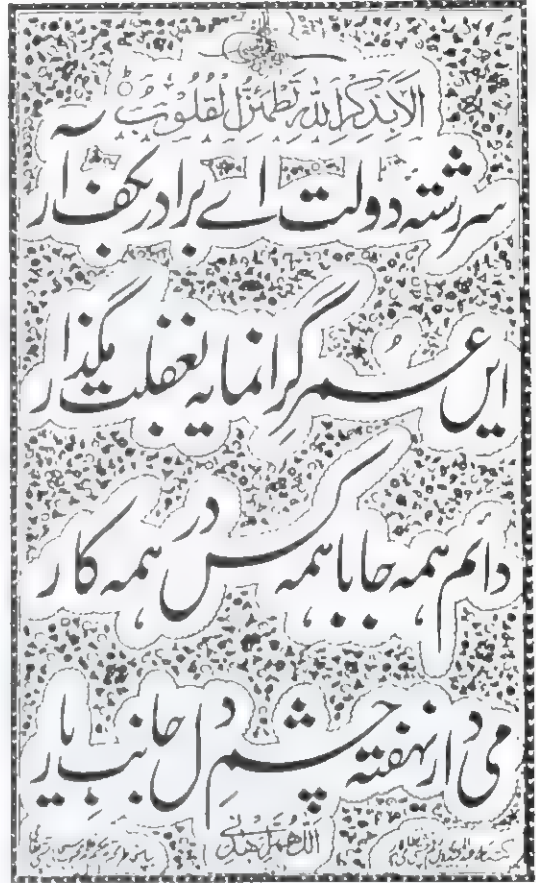 الا بذکر الله تطمئن القلوب
سررشتہ دولت اے برادر بکف آر
ایں عمر گرانمایہ بغفلت مگذار
دائم ہمہ جا با ہمہ کس در ہمہ کار
می دار نہفتہ چشم دل جانب یار